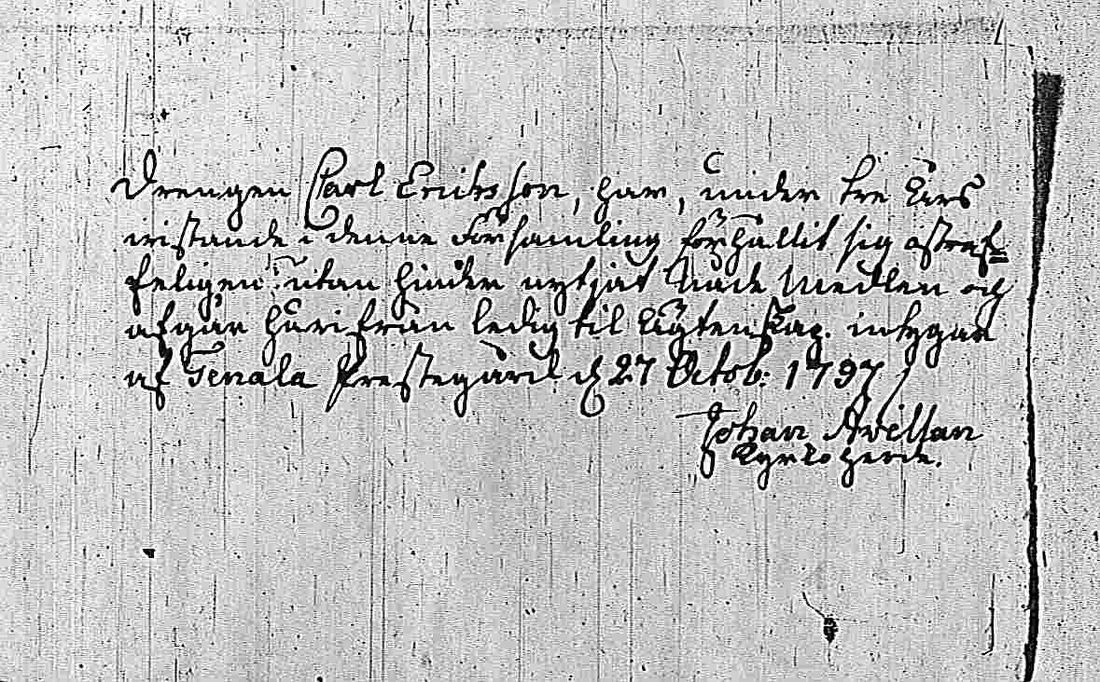 Drengen Carl Ericksson, har, under tre års
vistande i denne Församling förhållit sig ostraf=
feligen, utan hinder nytjat Nåde Medlen och
afgår härifrån ledig til Ägtenskap. intygar
af Tenala Prestegård d 27 Octob: 1797
Johan Avellan
Kyrko herde.